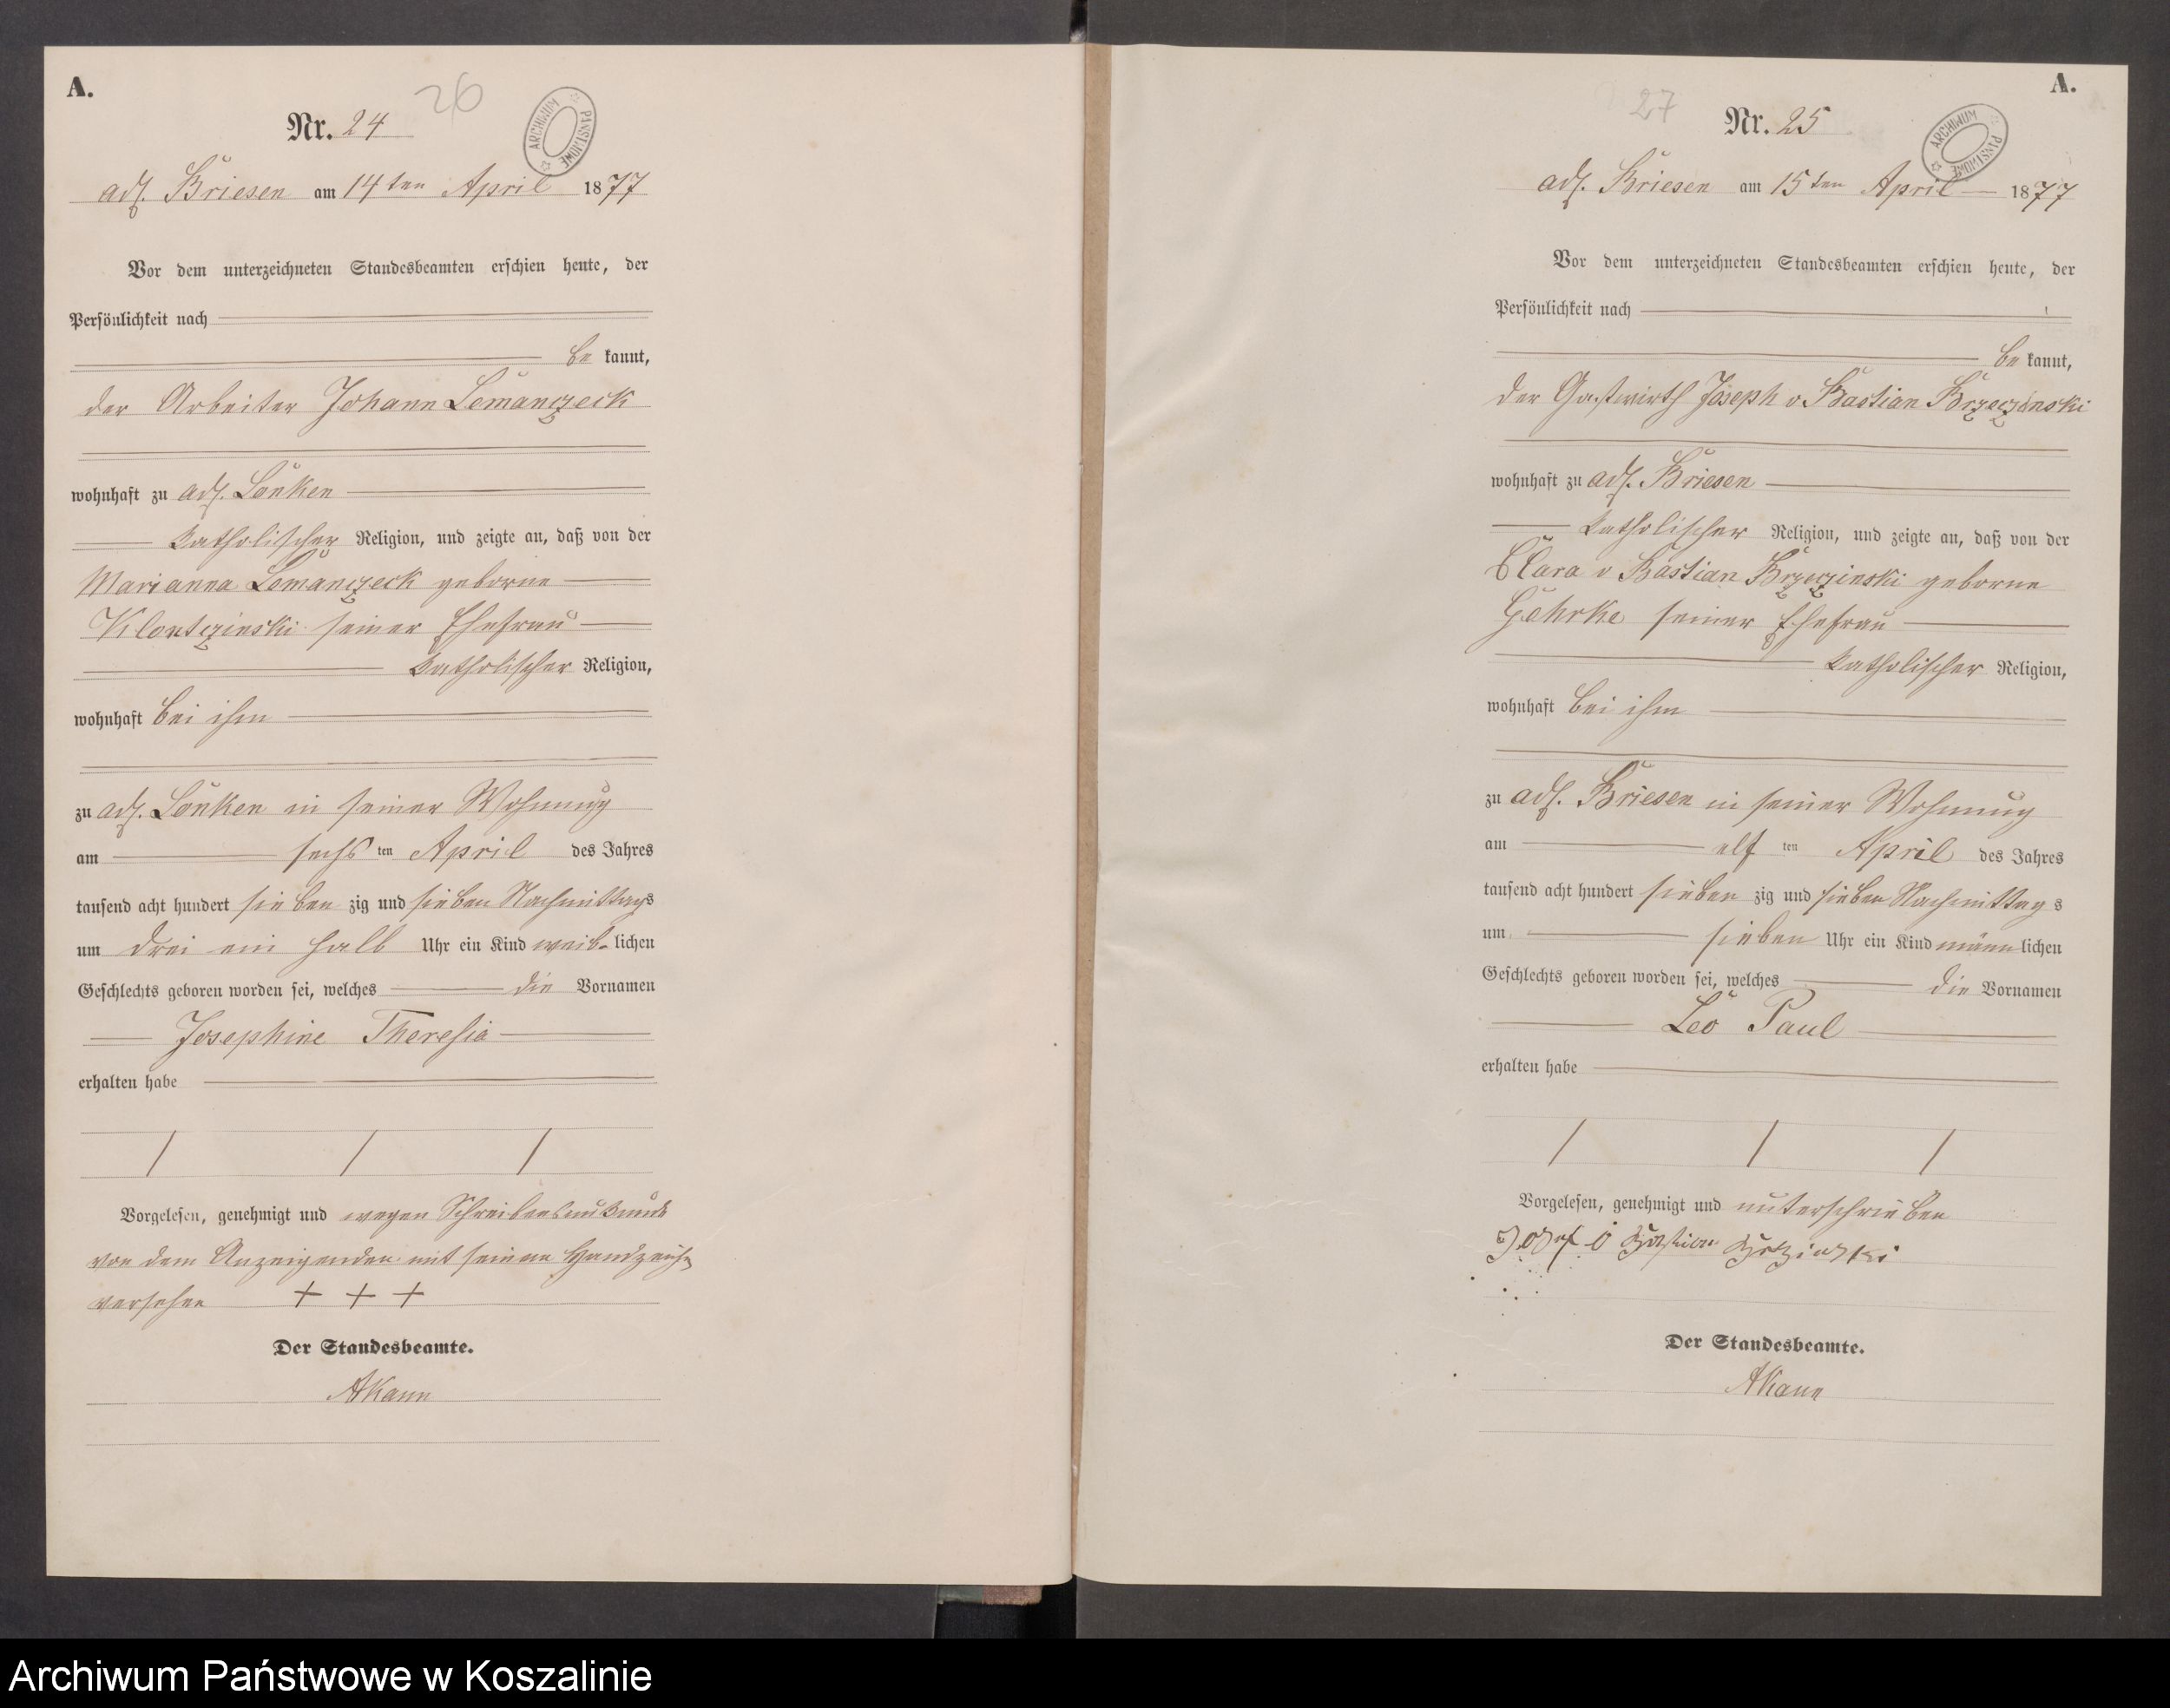 A.
26
Nr. 24
ARCHIWUM PAŃSTWOWE
adl. Briesen am 14 ten April 1877
Vor dem unterzeichneten Standesbeamten erschien heute, der
Persönlichkeit nach
be kannt,
der Arbeiter Johann Lemanczeck
wohnhaft zu adl. Lonken
katholischer Religion, und zeigte an, daß von der
Marianna Lemanczeck geborne
Klontczinski seiner Ehefrau
katholischer Religion,
wohnhaft bei ihm
zu adl. Lonken in seiner Wohnung
am sechs ten April des Jahres
tausend acht hundert sieben zig und sieben Nachmittags
um drei ein halb Uhr ein Kind weib- lichen
Geschlechts geboren worden sei, welches die Vornamen
Josephine Theresia
erhalten habe
Vorgelesen, genehmigt und wegen Schreibensunkunde
von dem Anzeigenden mit seinem Handzeichn
versehen + + +
Der Standesbeamte.
AKann
A.
27
Nr. 25
ARCHIWUM PAŃSTWOWE
adl. Briesen am 15 ten April 1877
Vor dem unterzeichneten Standesbeamten erschien heute, der
Persönlichkeit nach
be kannt,
der Gastwirth Joseph v Bastian Brzeczinski
wohnhaft zu adl. Briesen
katholischer Religion, und zeigte an, daß von der
Clara v Bastian Brzeczinski geborne
Gehrke seiner Ehefrau
katholischer Religion,
wohnhaft bei ihm
zu adl. Briesen in seiner Wohnung
am elf ten April des Jahres
tausend acht hundert sieben zig und sieben Nachmittag s
um sieben Uhr ein Kind männ lichen
Geschlechts geboren worden sei, welches die Vornamen
Leo Paul
erhalten habe
Vorgelesen, genehmigt und unterschrieben
Der Standesbeamte.
AKann
Archiwum Państwowe w Koszalinie